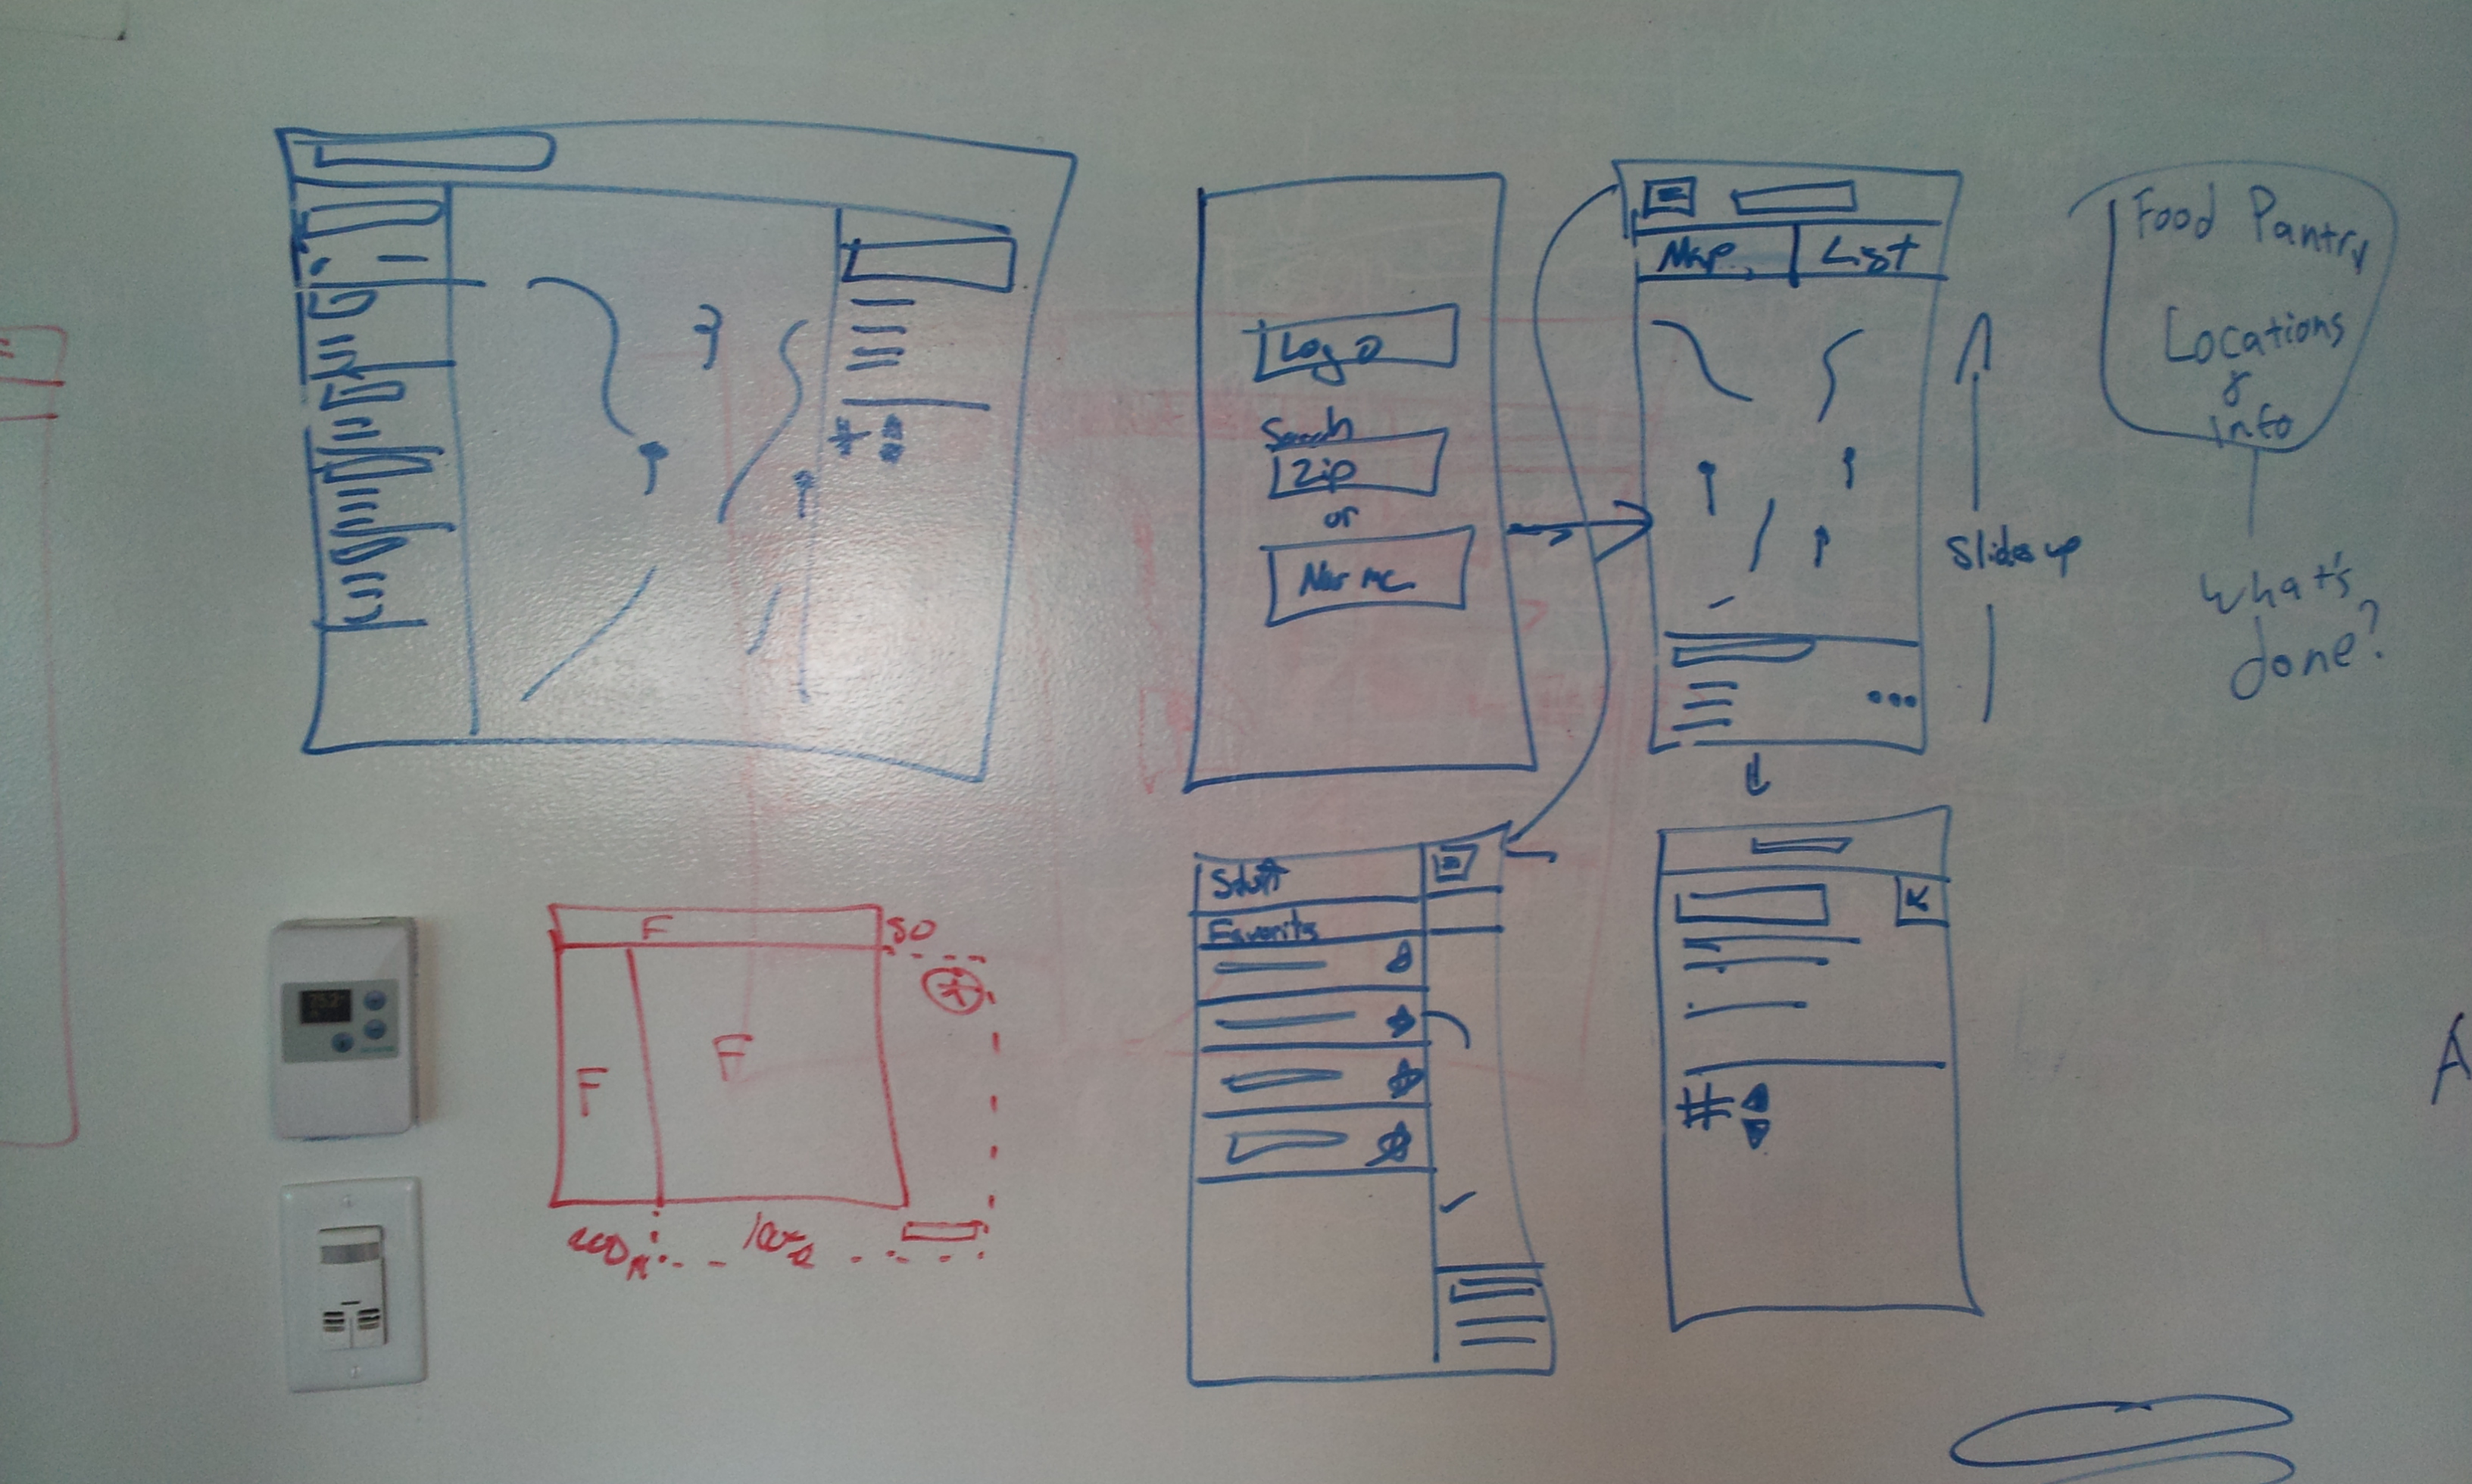 Logo
Search
Zip
or
Near me
Map
List
Slides up
Food Pantry
Locations
&
info
what's
done?
Stuff
Favorits
#
F
50
F
F
#
A